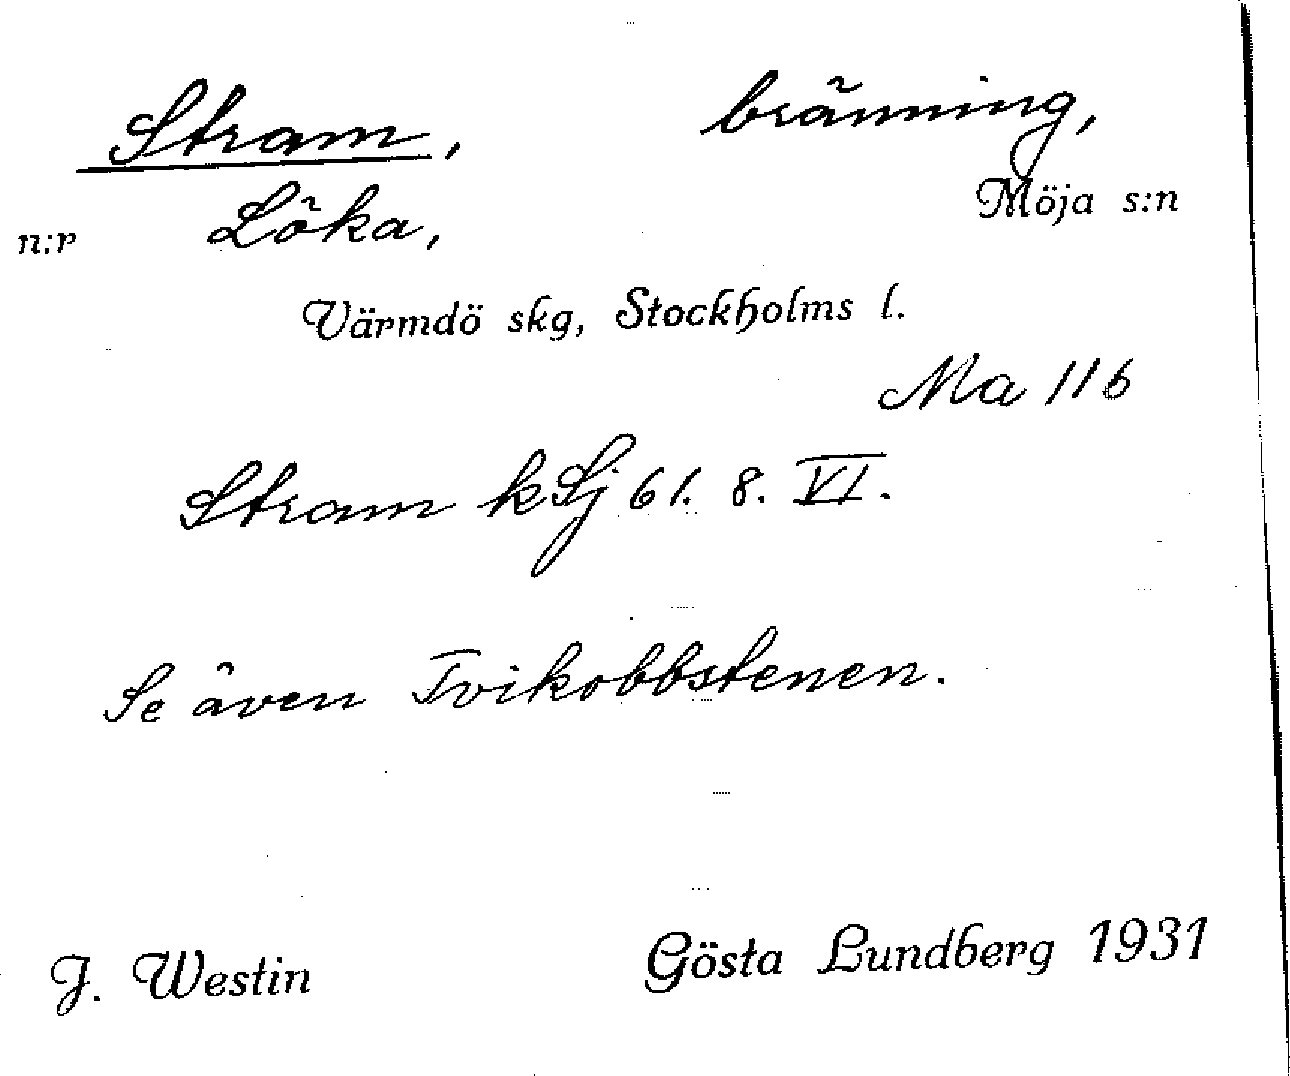 Stram, bränning,
n:r Löka, Möja s:n
Värmdö skg, Stockholms l.
Ma 116
Stram k Sj 61. 8. VI.
Se även Tvikobbstenen.
J. Westin Gösta Lundberg 1931